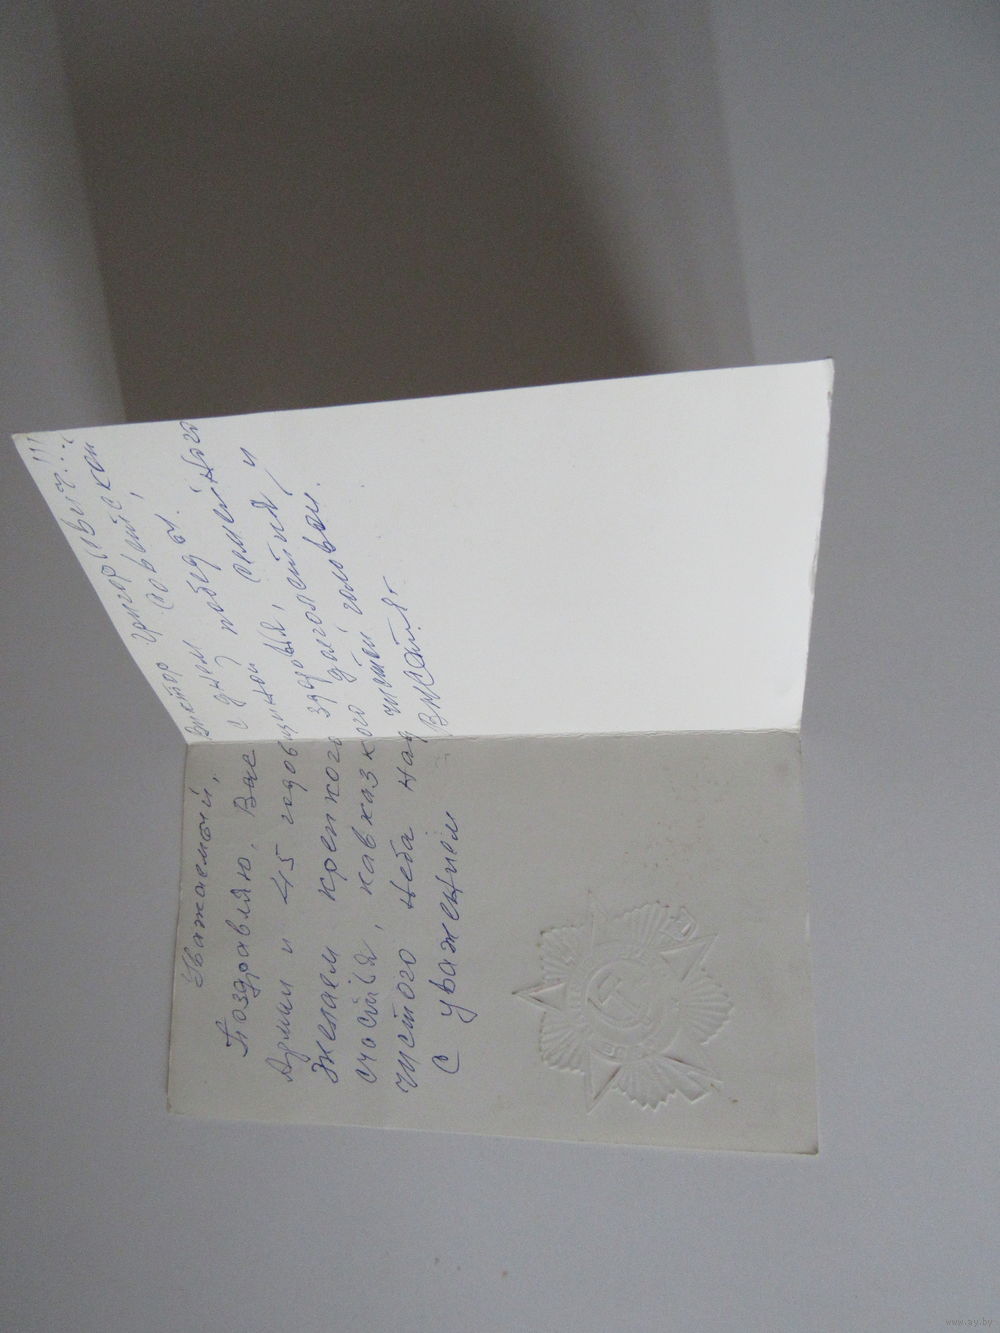 Уважаемый, Виктор Григорьевич!!!
Поздравляю Вас с днём Советской
Армии и 45 годовщиной победы.
Желаем крепкого здоровья, семейного
счастья, кавказкого долголетия и
чистого неба над чистой головой.
С уважением
www.ay.by